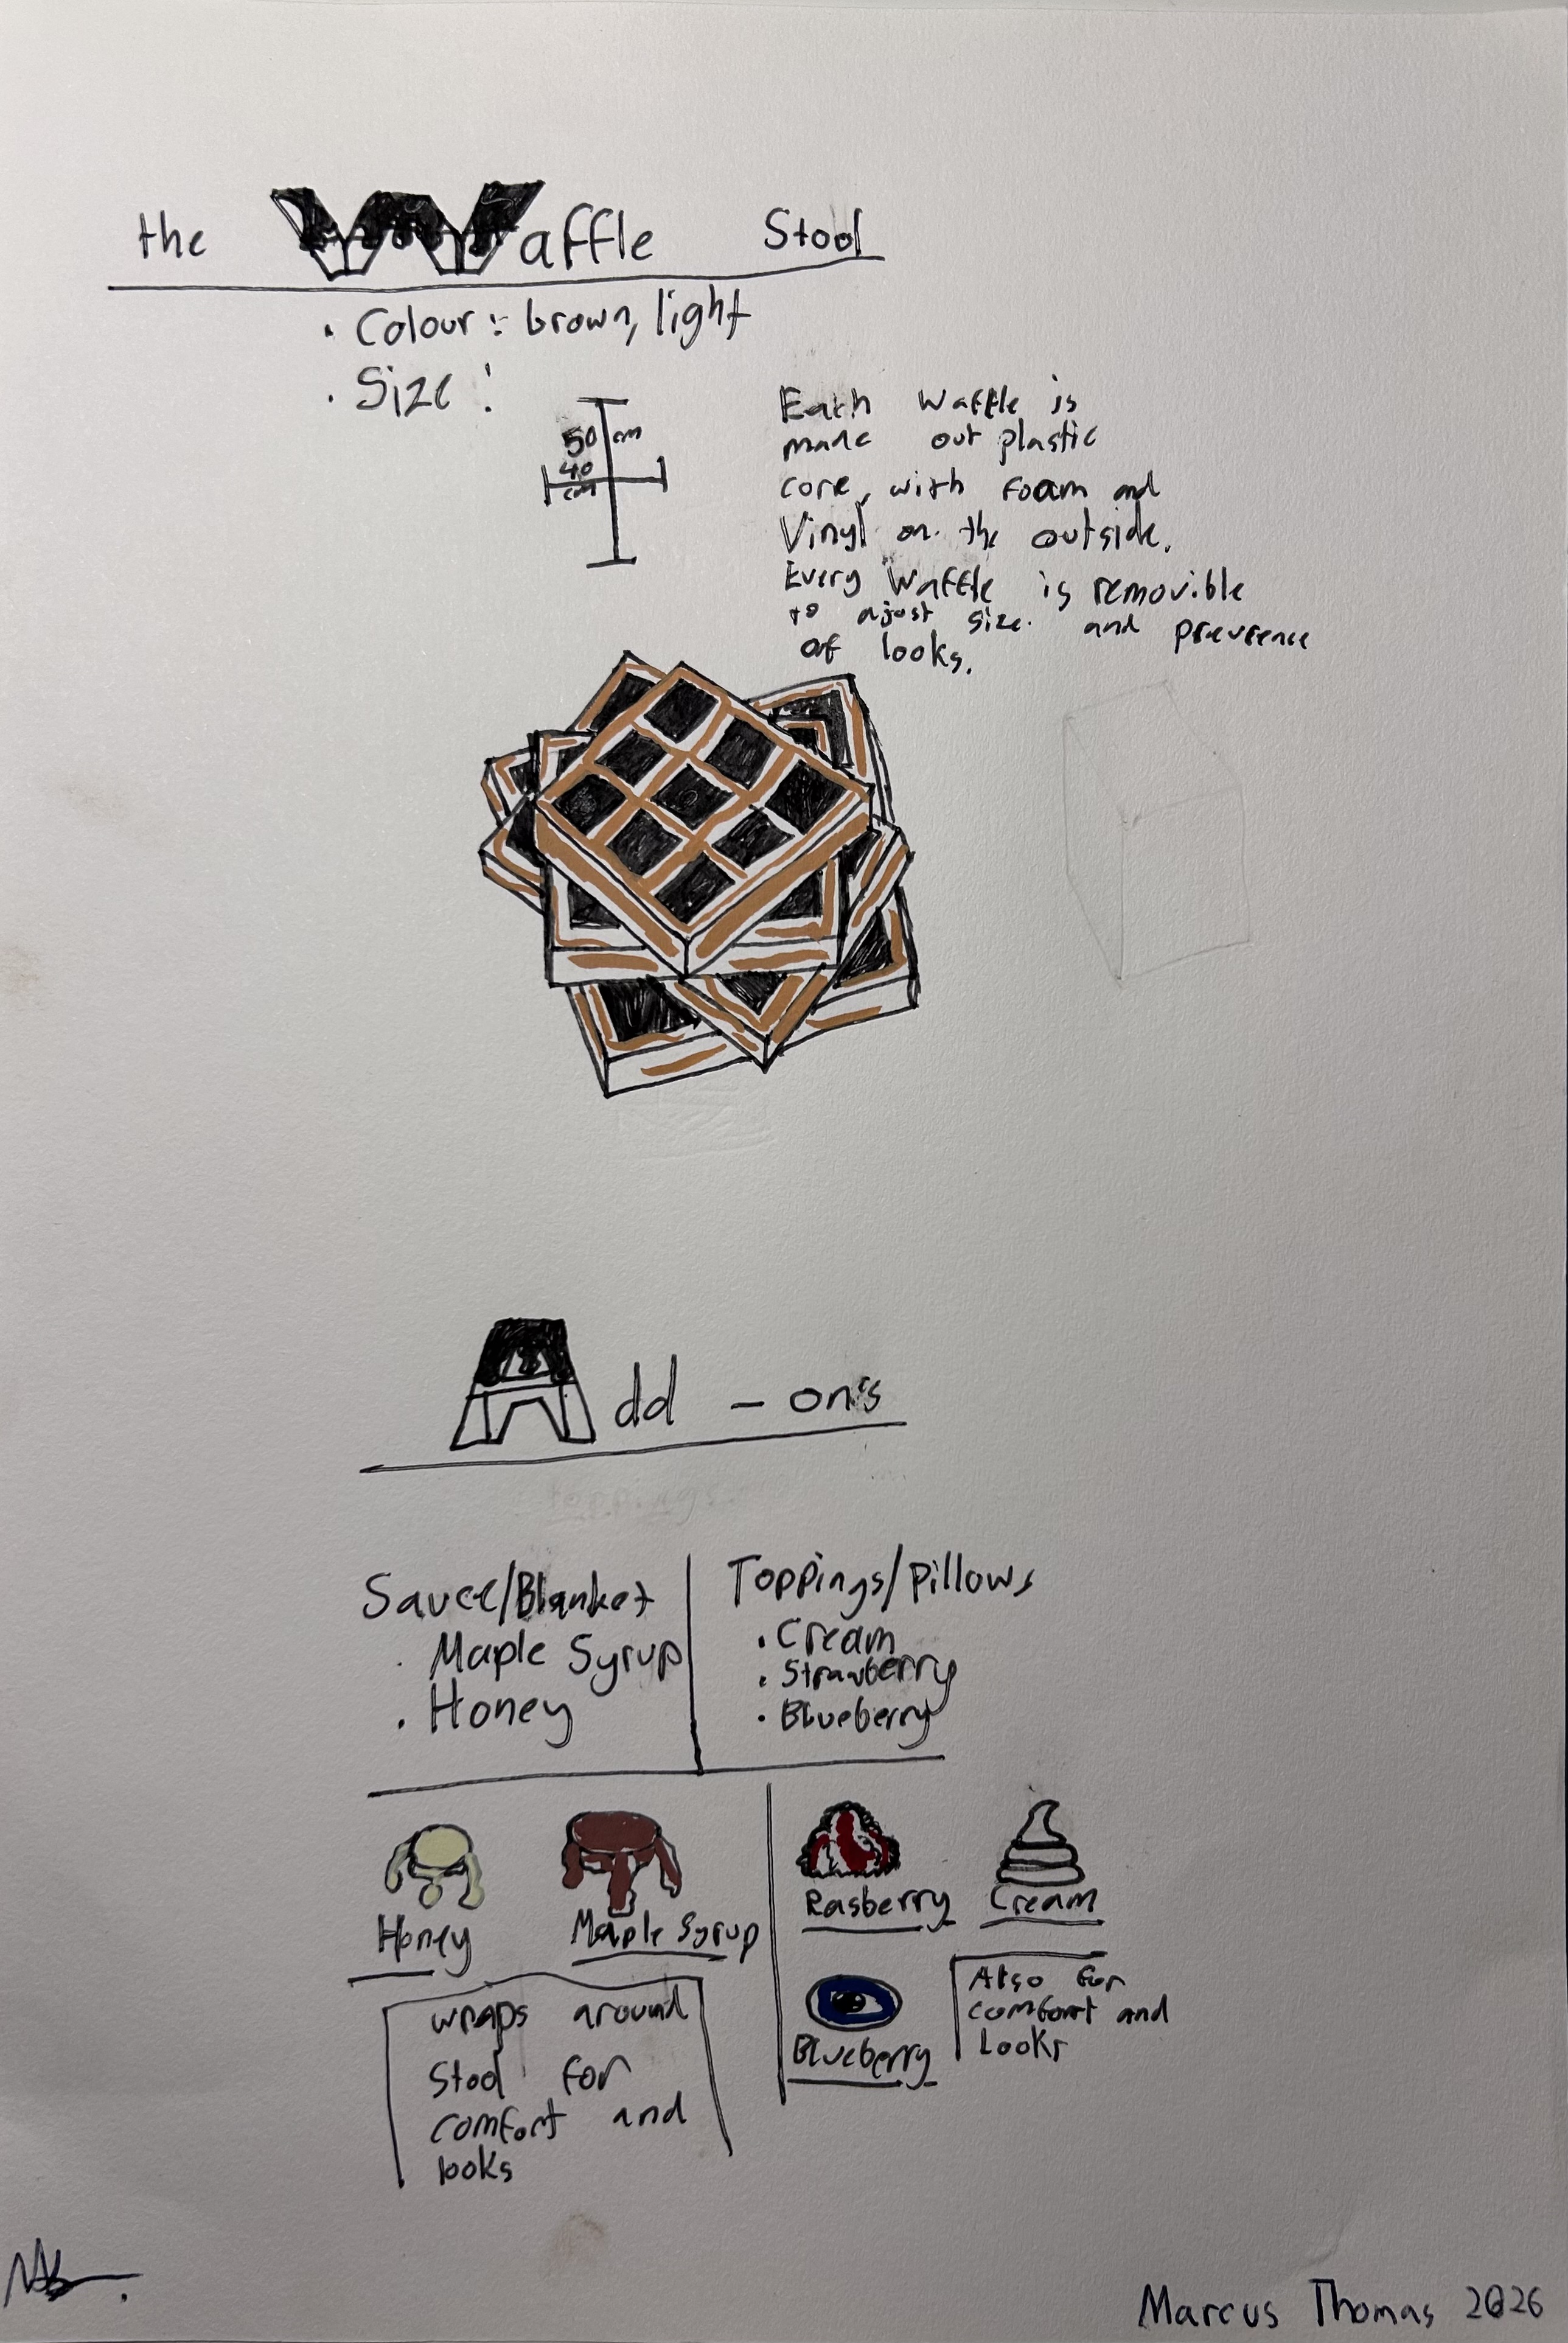 the Waffle Stool
· Colour : brown, light
· Size :
50 cm
40 cm
Each Waffle is
made out plastic
core, with foam and
Vinyl on the outside.
Every Waffle is removible
to ajust size. and prevrence
of looks.
Add - on's
toppings
Sauce/Blanket
· Maple Syrup
· Honey
Toppings/Pillows
· Cream
· Strawberry
· Blueberry
Honey
Maple Syrup
wraps around
Stool for
comfort and
looks
Rasberry
Cream
Blueberry
Also for
comfort and
Looks
Marcus Thomas 2026